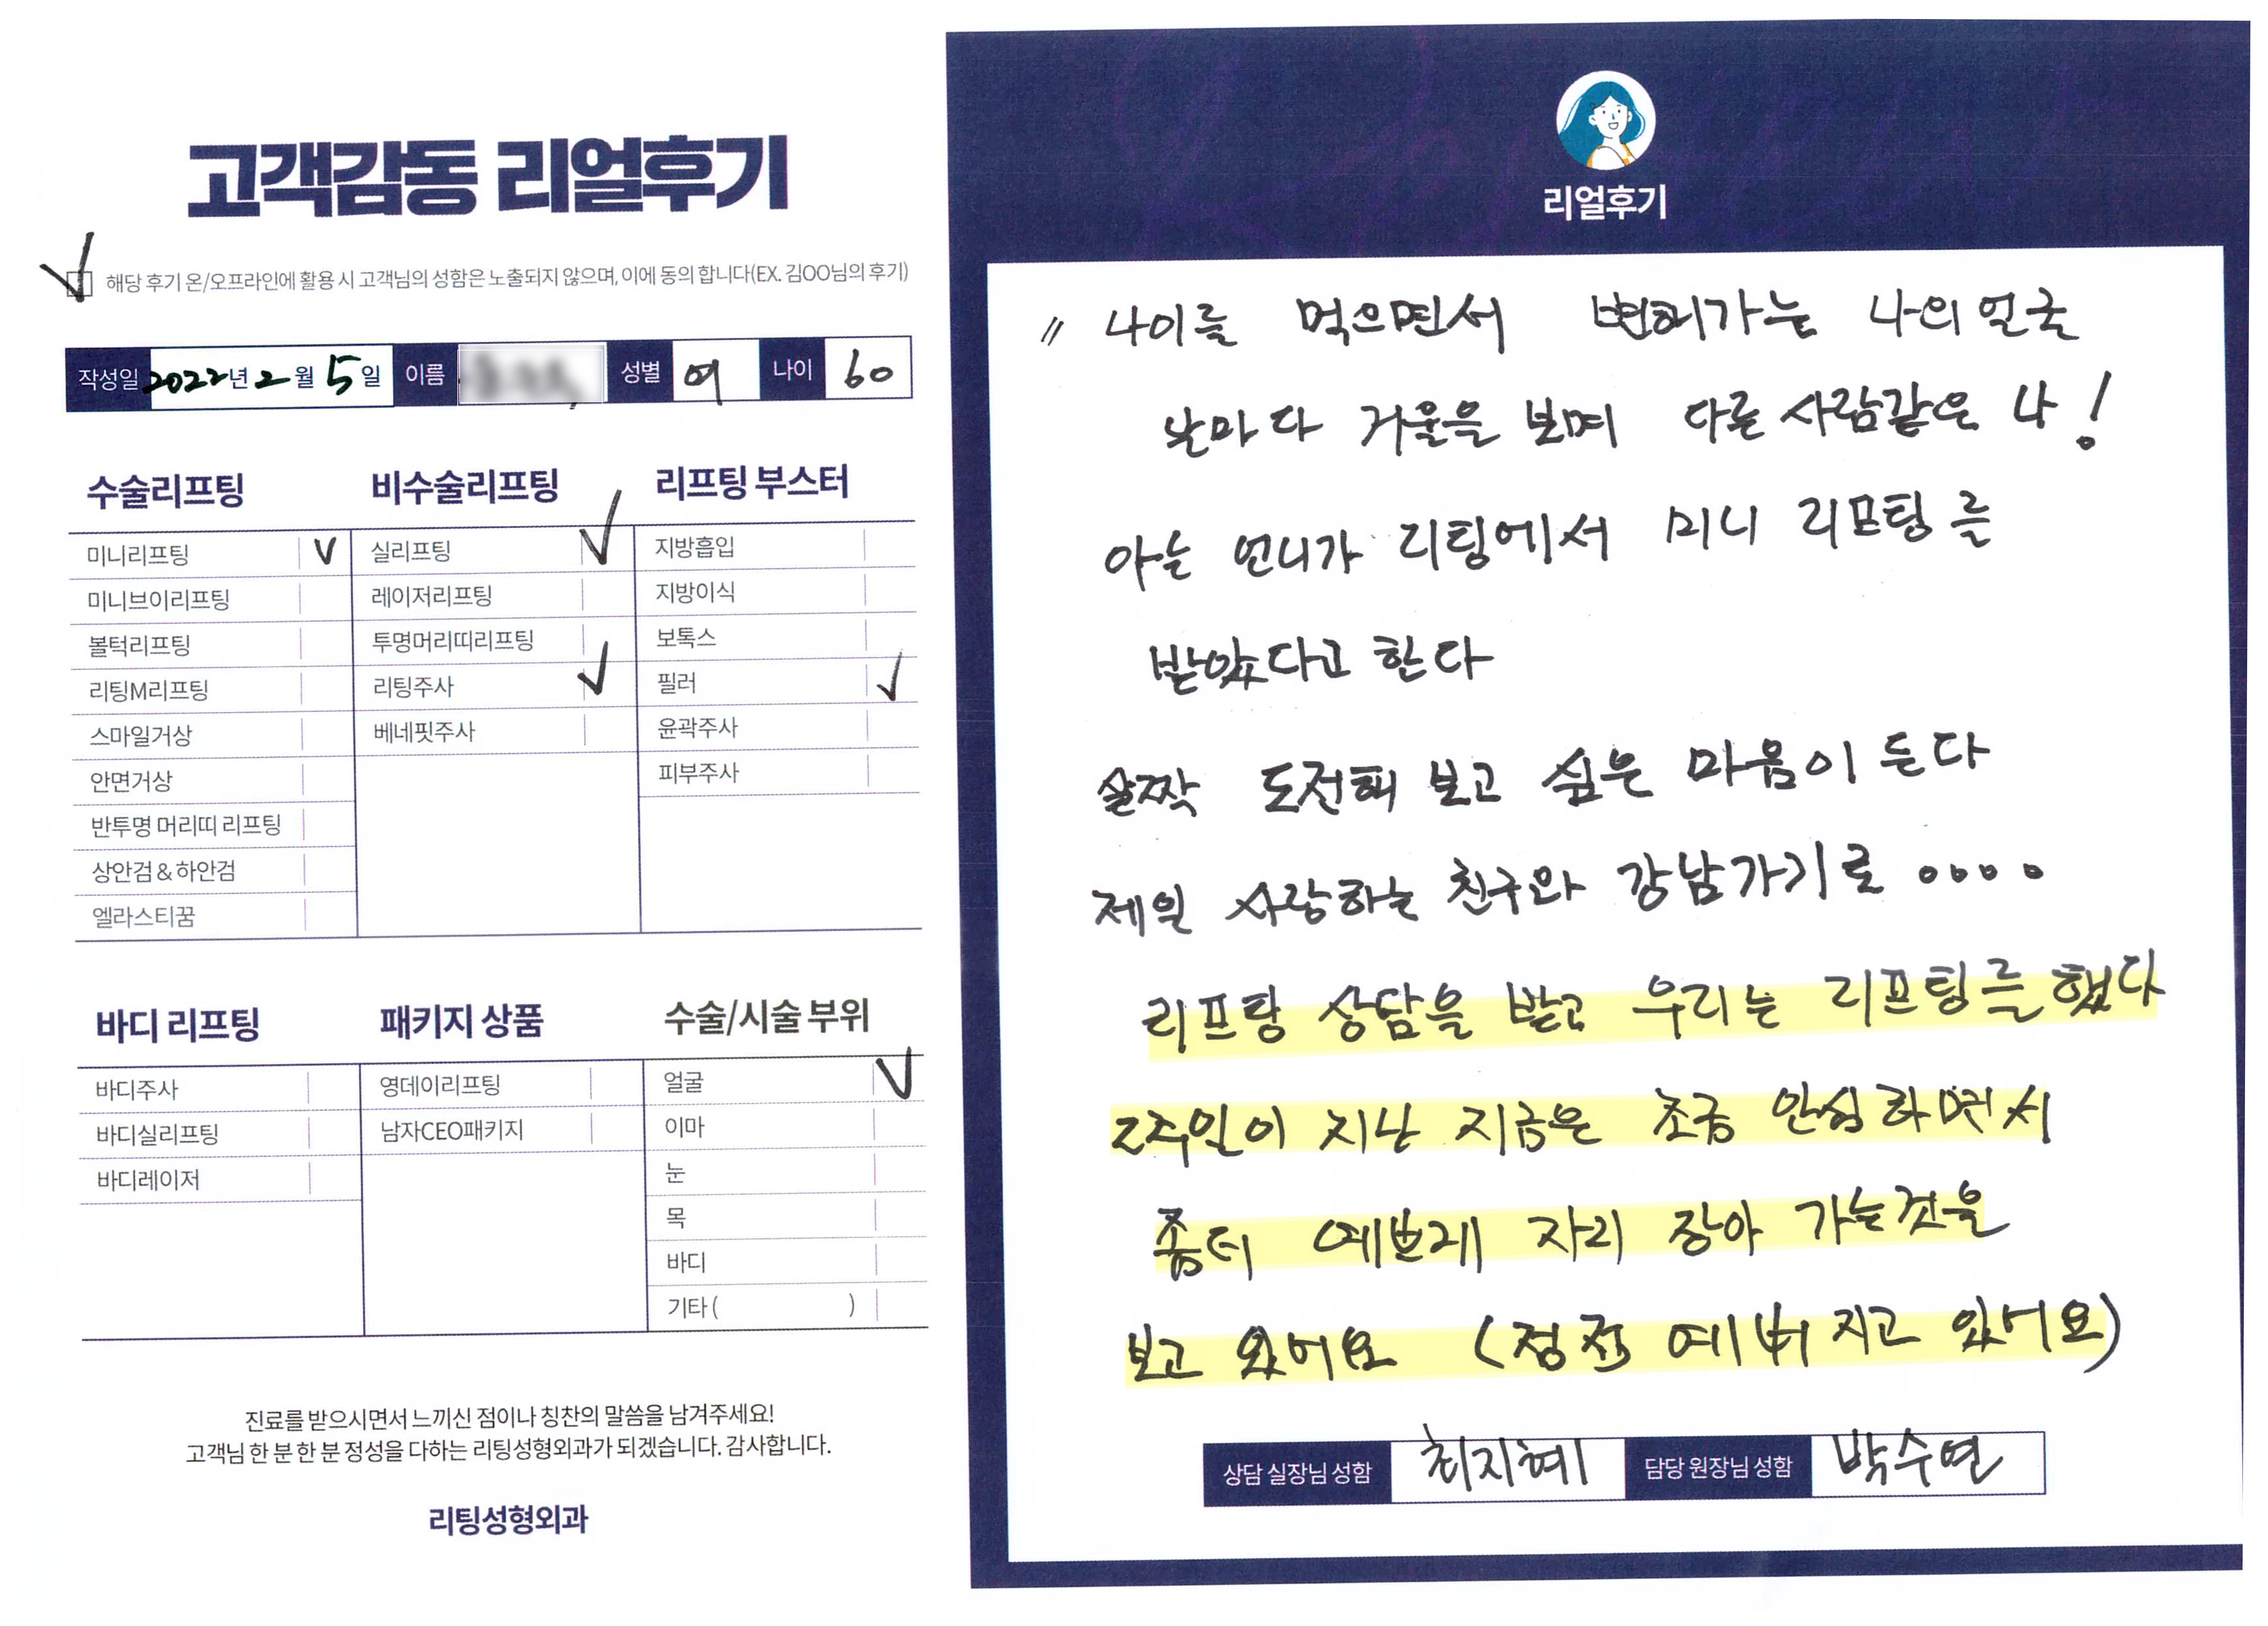 고객감동 리얼후기
해당 후기 온/오프라인에 활용 시 고객님의 성함은 노출되지 않으며, 이에 동의 합니다(EX. 김OO님의 후기)
작성일 2022년 2월 5일 이름 성별 여 나이 60
수술리프팅
미니리프팅 V
미니브이리프팅
볼턱리프팅
리팅M리프팅
스마일거상
안면거상
반투명 머리띠 리프팅
상안검 & 하안검
엘라스티꿈
비수술리프팅
실리프팅 V
레이저리프팅
투명머리띠리프팅
리팅주사 V
베네핏주사
리프팅 부스터
지방흡입
지방이식
보톡스
필러 V
윤곽주사
피부주사
바디 리프팅
바디주사
바디실리프팅
바디레이저
패키지 상품
영데이리프팅
남자CEO패키지
수술/시술 부위
얼굴 V
이마
눈
목
바디
기타 ( )
진료를 받으시면서 느끼신 점이나 칭찬의 말씀을 남겨주세요!
고객님 한 분 한 분 정성을 다하는 리팅성형외과가 되겠습니다. 감사합니다.
리팅성형외과
리얼후기
" 나이를 먹으면서 변해가는 나의 얼굴
날마다 거울을 보며 다른 사람같은 나!
아는 언니가 리팅에서 미니 리프팅를
받았다고 한다
살짝 도전해 보고 싶은 마음이 든다
제일 사랑하는 친구와 강남가기로 ....
리프팅 상담을 받고 우리는 리프팅를 했다
2주일이 지난 지금은 조금 안심하면서
좀더 예쁘게 자리 잡아 가는것을
보고 있어요 (점점 예뻐지고 있어요)
상담 실장님 성함 최지혜 담당 원장님 성함 박수연